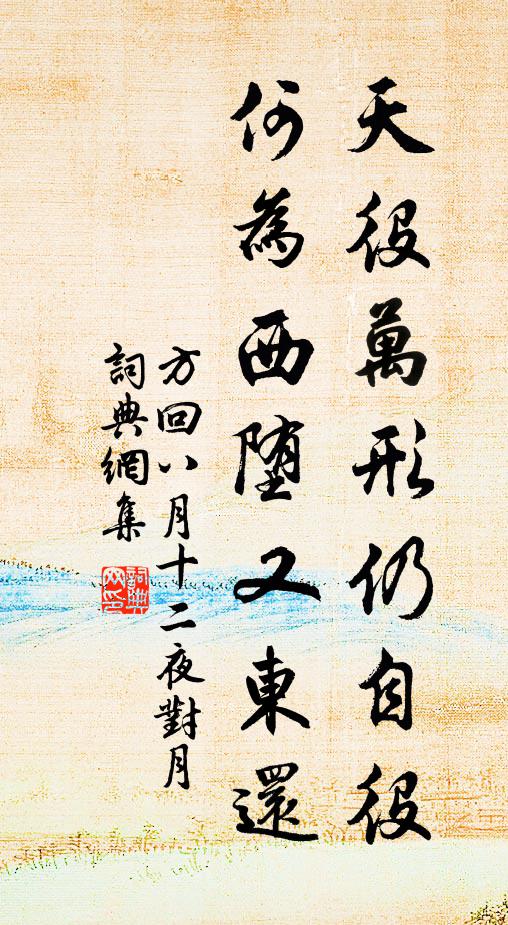 天役萬形仍自役
何為西堕又東還
方回八月十二夜對月
詞典網集
詞典網印